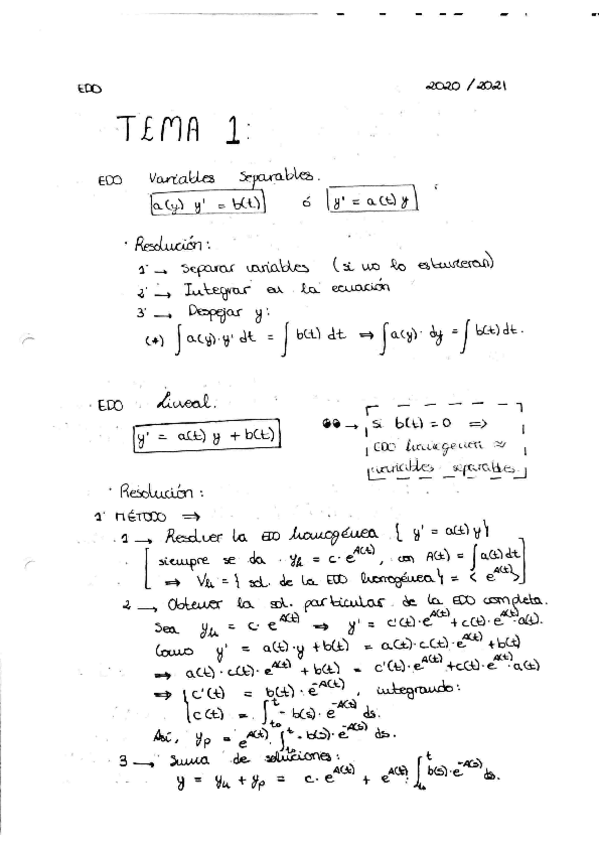 EDO 2020/2021
TEMA 1:
EDO Variables Separables.
a(y) y' = b(t) ó y' = a(t) y
· Resolución:
1º → Separar variables (si no lo estuvieran)
2º → Integrar en la ecuación
3º → Despejar y:
(*) ∫a(y)·y' dt = ∫b(t) dt ⇒ ∫a(y)· dy = ∫b(t) dt.
· EDO Lineal.
y' = a(t) y + b(t)
→ si b(t) = 0 ⇒
EDO homogénea ≈
variables separables
· Resolución:
1º MÉTODO ⇒
1 → Resolver la EDO homogénea { y' = a(t) y}
siempre se da yₕ = c·e^A(t), con A(t) = ∫a(t) dt
⇒ Vₕ = { sol. de la EDO homogénea} = < e^A(t)>
2 → Obtener la sol. particular de la EDO completa.
Sea yₕ = c·e^A(t) ⇒ y' = c'(t)·e^A(t) + c(t)·e^A(t)·a(t).
Como y' = a(t)·y + b(t) = a(t)·c(t)·e^A(t) + b(t)
⇒ a(t)·c(t)·e^A(t) + b(t) = c'(t)·e^A(t) + c(t)·e^A(t)·a(t)
⇒ { c'(t) = b(t)·e^-A(t), integrando:
c(t) = ∫_t₀^t b(s)·e^-A(s) ds.
Así, yₚ = e^A(t)·∫_t₀^t b(s)·e^-A(s) ds.
3 → Suma de soluciones:
y = yₕ + yₚ = c·e^A(t) + e^A(t)·∫_t₀^t b(s)·e^-A(s) ds.